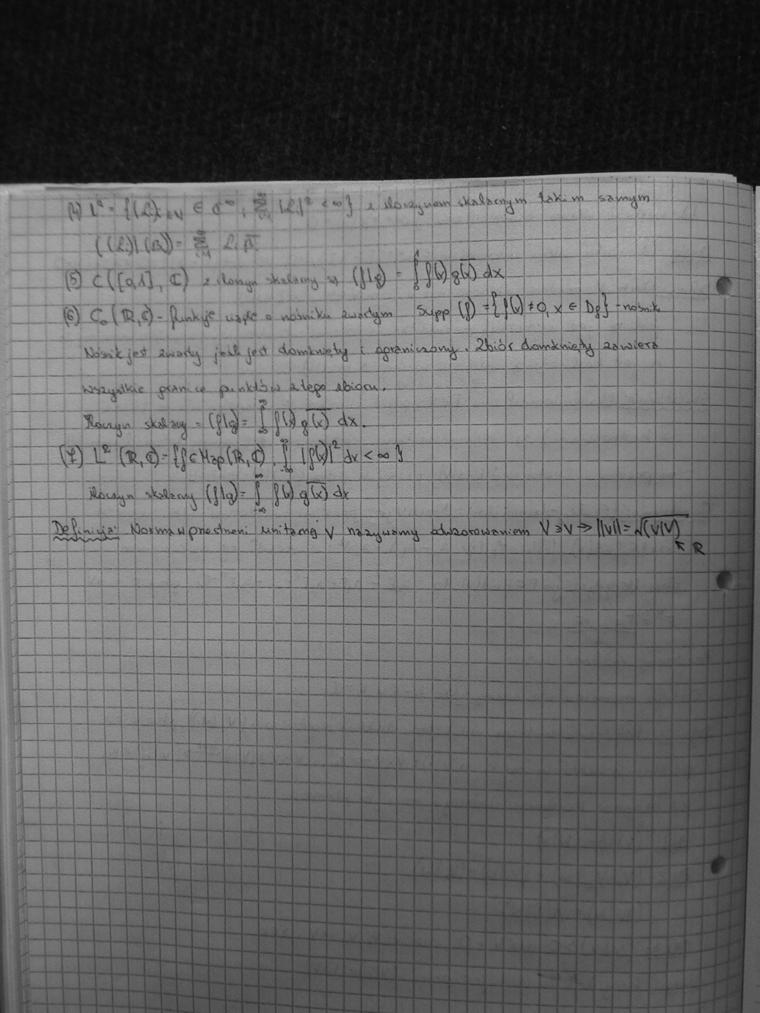 (4) l² = {(αᵢ)ᵢ∈ℕ ∈ ℂ^∞, Σ |αᵢ|² < ∞} z iloczynem skalarnym takim samym
((αᵢ)|(βᵢ)) = Σ αᵢ β̄ᵢ
(5) C([0,1], ℂ) z iloczyn skalarny (f|g) = ∫₀¹ f(x) g̅(̅x̅)̅ dx
(6) C₀(ℝ,ℂ) - funkcje ciągłe o nośniku zwartym Supp (f) = {f(x) ≠ 0, x ∈ D_f} - nośnik
Nośnik jest zwarty jeśli jest domknięty i ograniczony. Zbiór domknięty zawiera
wszystkie granice punktów z tego zbioru.
Iloczyn skalarny = (f|g) = ∫_{-∞}^{∞} f(x) g̅(̅x̅)̅ dx.
(7) L² (ℝ,ℂ) = {f ∈ Map(ℝ,ℂ), ∫_{-∞}^{∞} |f(x)|² dx < ∞}
iloczyn skalarny (f|g) = ∫_{-∞}^{∞} f(x) g̅(̅x̅)̅ dx
Definicja: Normą w przestrzeni unitarnej V nazywamy odwzorowaniem V∋v → ||v|| = √(v|v)
ℝ